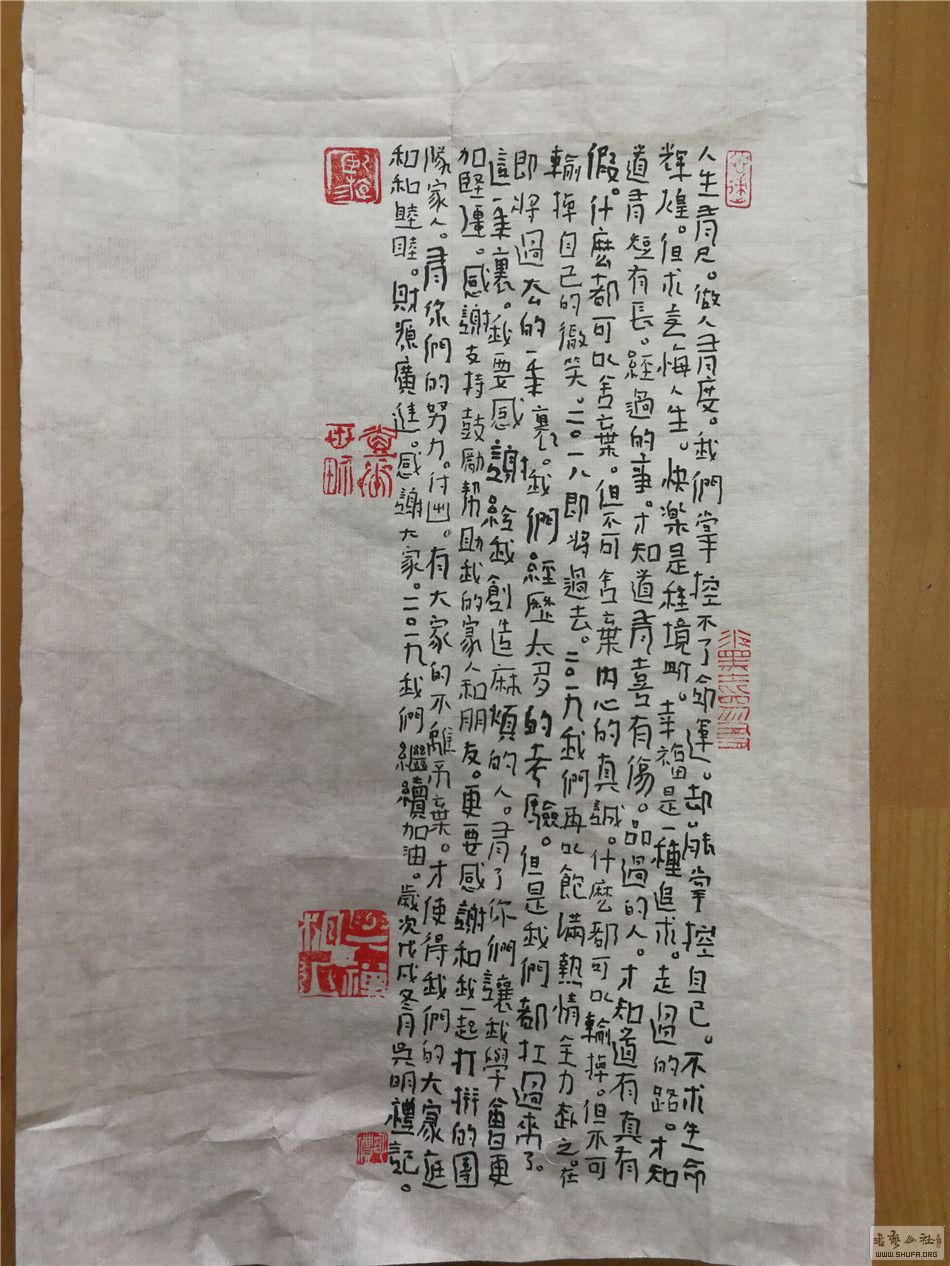 人生有尺。做人有度。我們掌控不了命運。却。能掌控自己。不求生命
輝煌。但求无悔人生。快樂是種境界。幸福是一種追求。走過的路。才知
道有短有長。經過的事。才知道有喜有傷。品過的人。才知道有真有
假。什麼都可以舍棄。但不可舍棄内心的真誠。什麼都可以輸掉。但不可
輸掉自己的微笑。二〇一八即將過去。二〇一九我們再以飽滿熱情全力赴之。在
即將過去的一年裏。我們經歷太多的考驗。但是我們都扛過來了。
這一年裏。我要感謝給我創造麻煩的人。有了你們讓我學會更
加堅强。感謝支持鼓勵幫助我的家人和朋友。更要感謝和我一起打拚的團
隊家人。有你們的努力付出。有大家的不離不棄。才使得我們的大家庭
和和睦睦。財源廣進。感謝大家。二〇一九我們繼續加油。歲次戊戌冬月吳明禮記。
WWW.SHUFA.ORG